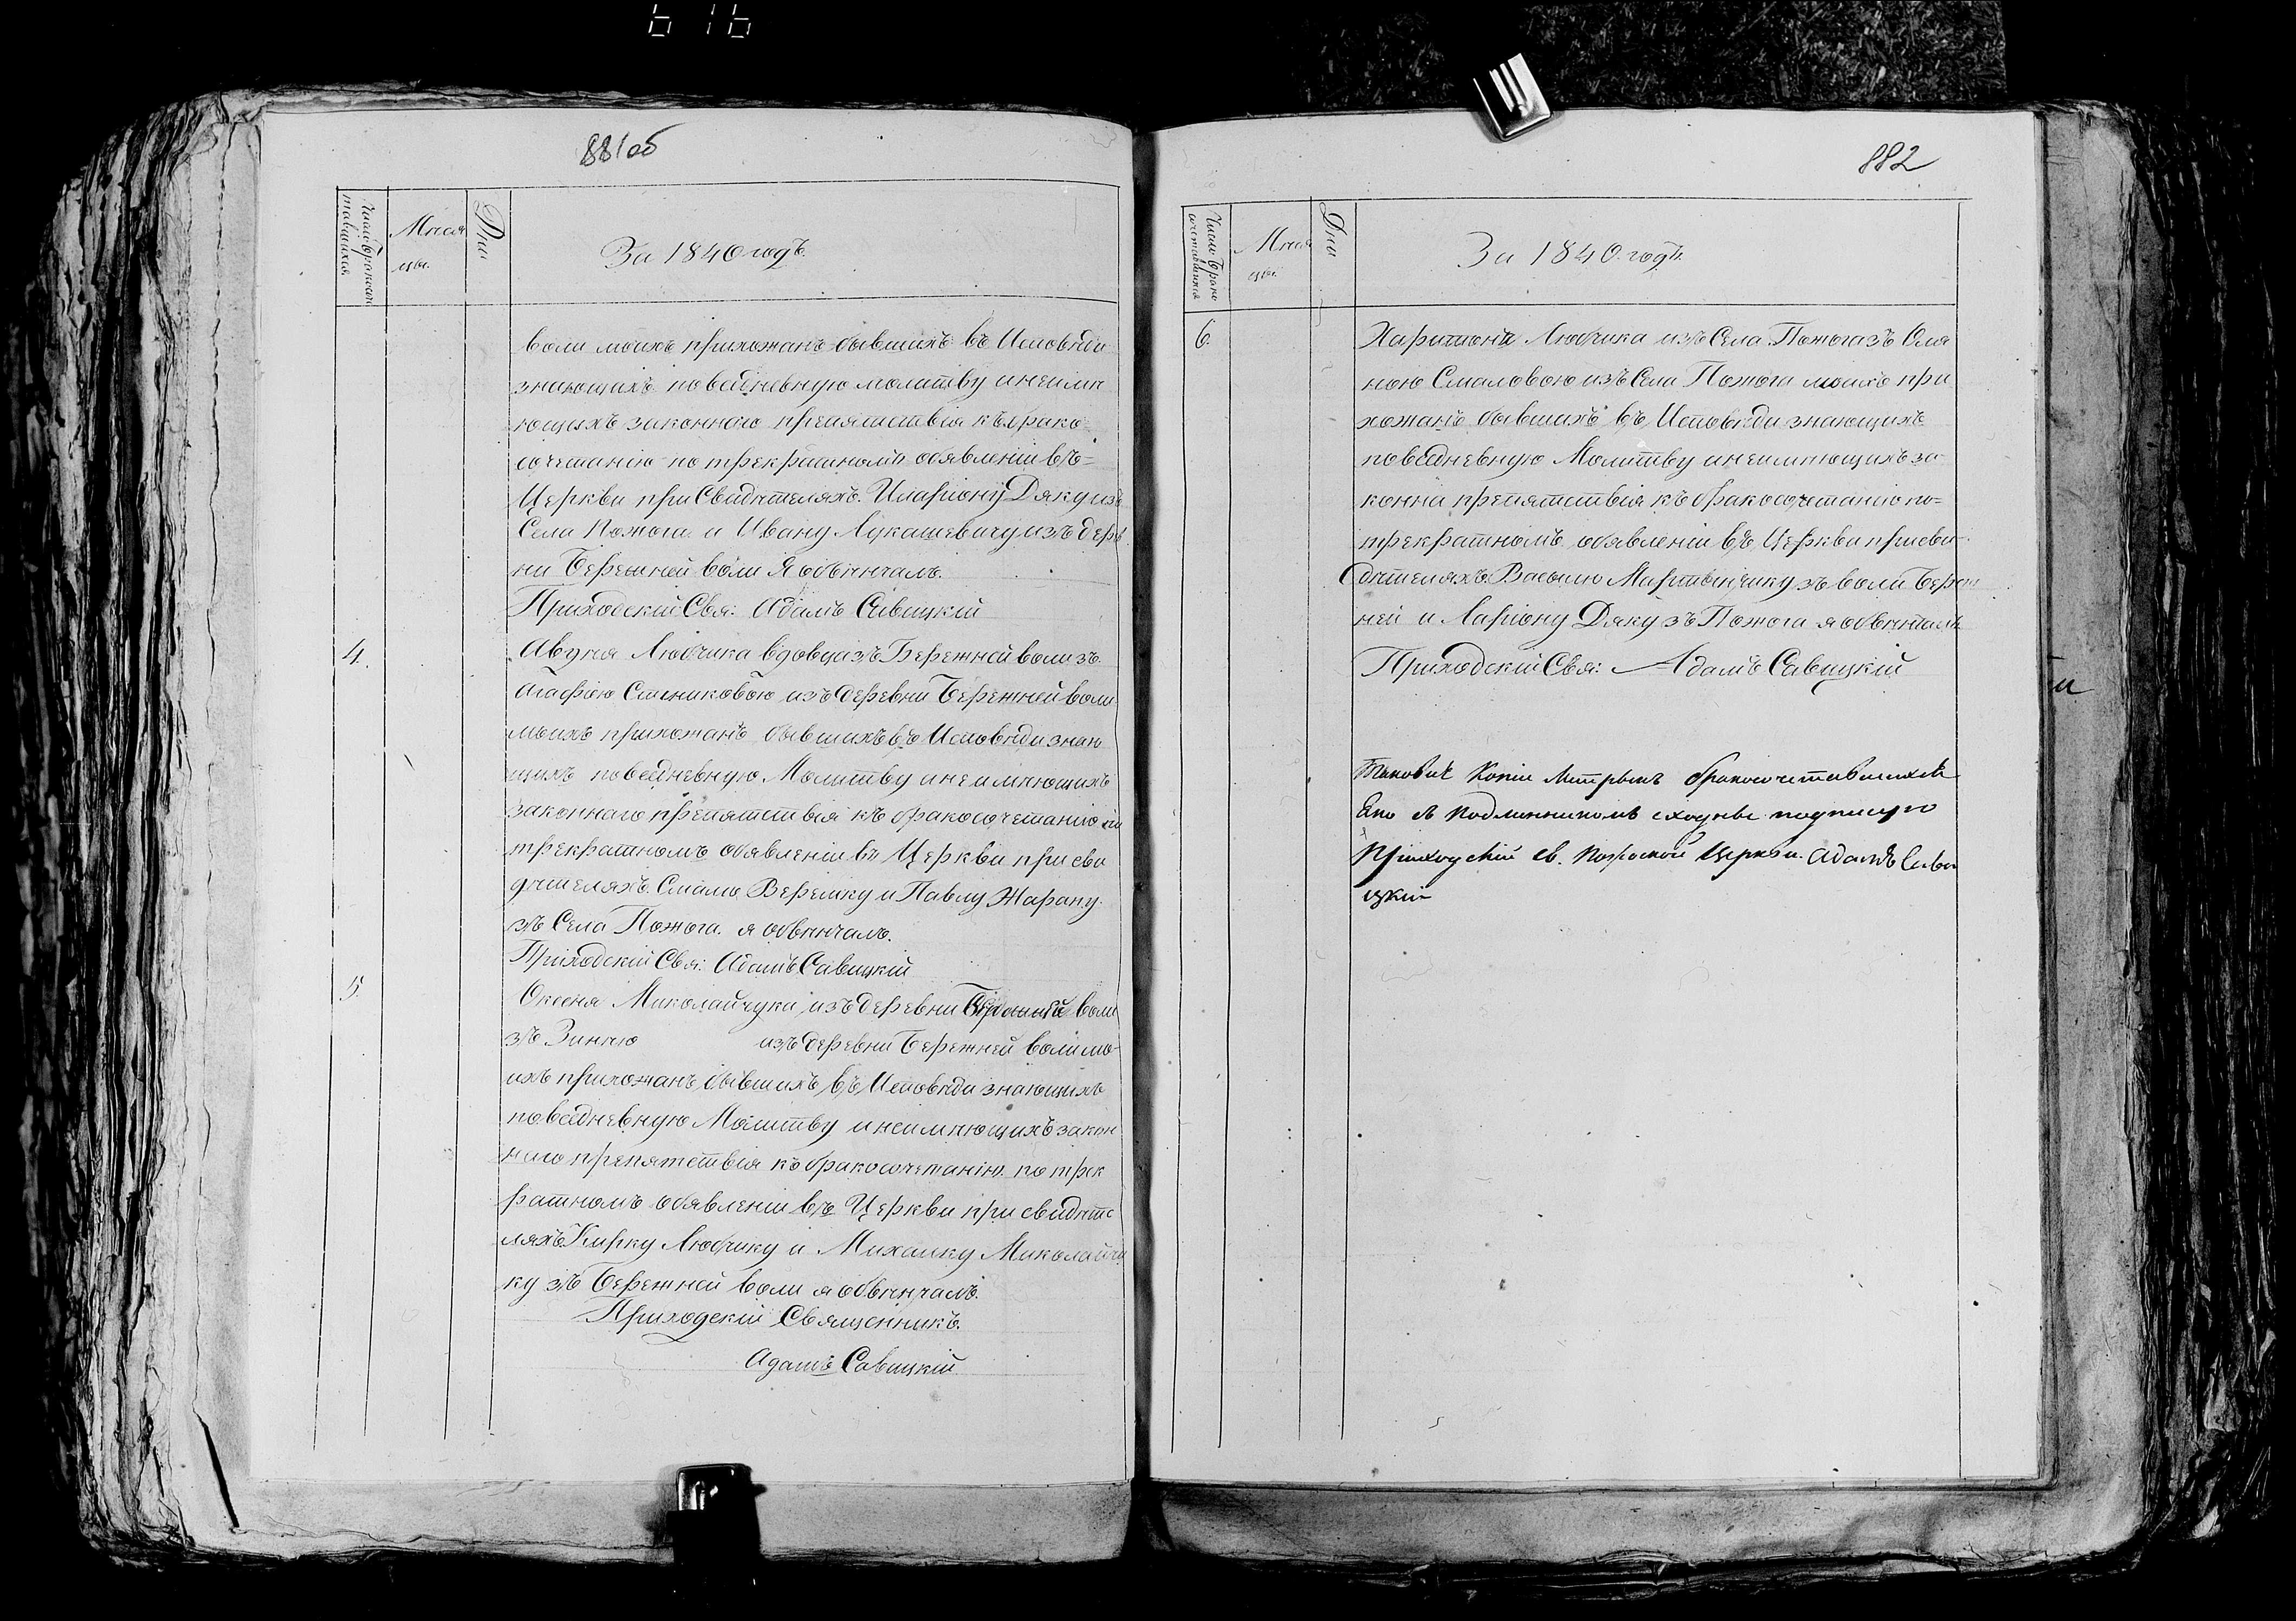 616
881об
Число бракосоче
тавшихся
Меся
цы.
Дни
За 1840 годъ.
воли моихъ прихожанъ бывшихъ въ Исповѣди
знающихъ повседневную молитву и неимѣ
ющихъ законного препятствія къ брако
сочетанію по трекратномъ обявленіи въ=
Церкви при Свидѣтеляхъ. Иларіону Дяку изъ
Села Пожога и Ивану Лукашевичу изъ дерев
ни Бережной воли Я обвѣнчалъ.
Приходскій Свя: Адамъ Савицкій
4. Авдуея Любчика вдовца зъ Бережней воли зъ
Агафіею изъ деревни Бережней воли
моихъ прихожанъ бывшихъ въ Исповѣди знаю
щихъ повседневную Молитву и неимѣющихъ
законнаго препятствія къ бракосочетанію по
трекратномъ обявленіи въ Церкви при сви
дѣтеляхъ Веремку и Павлу Жарану
зъ Села Пожога я обвѣнчалъ.
Приходскій Свя: Адамъ Савицкій
5. Оксеня Миколайчука изъ деревни воли
зъ Зинѣю изъ деревни Бережней воли мо-
ихъ прихожанъ бывшихъ въ Исповѣди знающихъ
повседневную Молитву и неимѣющихъ закон
наго препятствія къ бракосочетанію по трек
ратномъ обявленіи въ Церкви при свидѣте
ляхъ Кирку Любчику и Михалку Миколайчу
ку зъ Бережней воли я обвѣнчалъ.
Приходскій Священникъ.
Адамъ Савицкій
882
Число Брако
сочетавшихся
Меся
цы.
Дни
За 1840. годъ.
6. Харитона Любчика изъ Села Пожога зъ Оля
ною Смаловою изъ Села Пожога моихъ при
хожанъ бывшихъ въ Исповѣди знающихъ
повседневную Молитву и неимѣющихъ за-
конна препятствія къ бракосочетанію по=
трекратномъ обявленіи въ Церкви при сви-
дѣтеляхъ Василю Мартынчику зъ воли Береж
ней и Ларіону Дяку зъ Пожога я обвѣнчалъ
Приходскій Свя: Адамъ Савицкій
Таковые Копіи Метрыкъ бракосочетавшихся
Яко съ подлинникомъ сходные подписую
Приходскій св. Церкви. Адамъ Сави
цкій